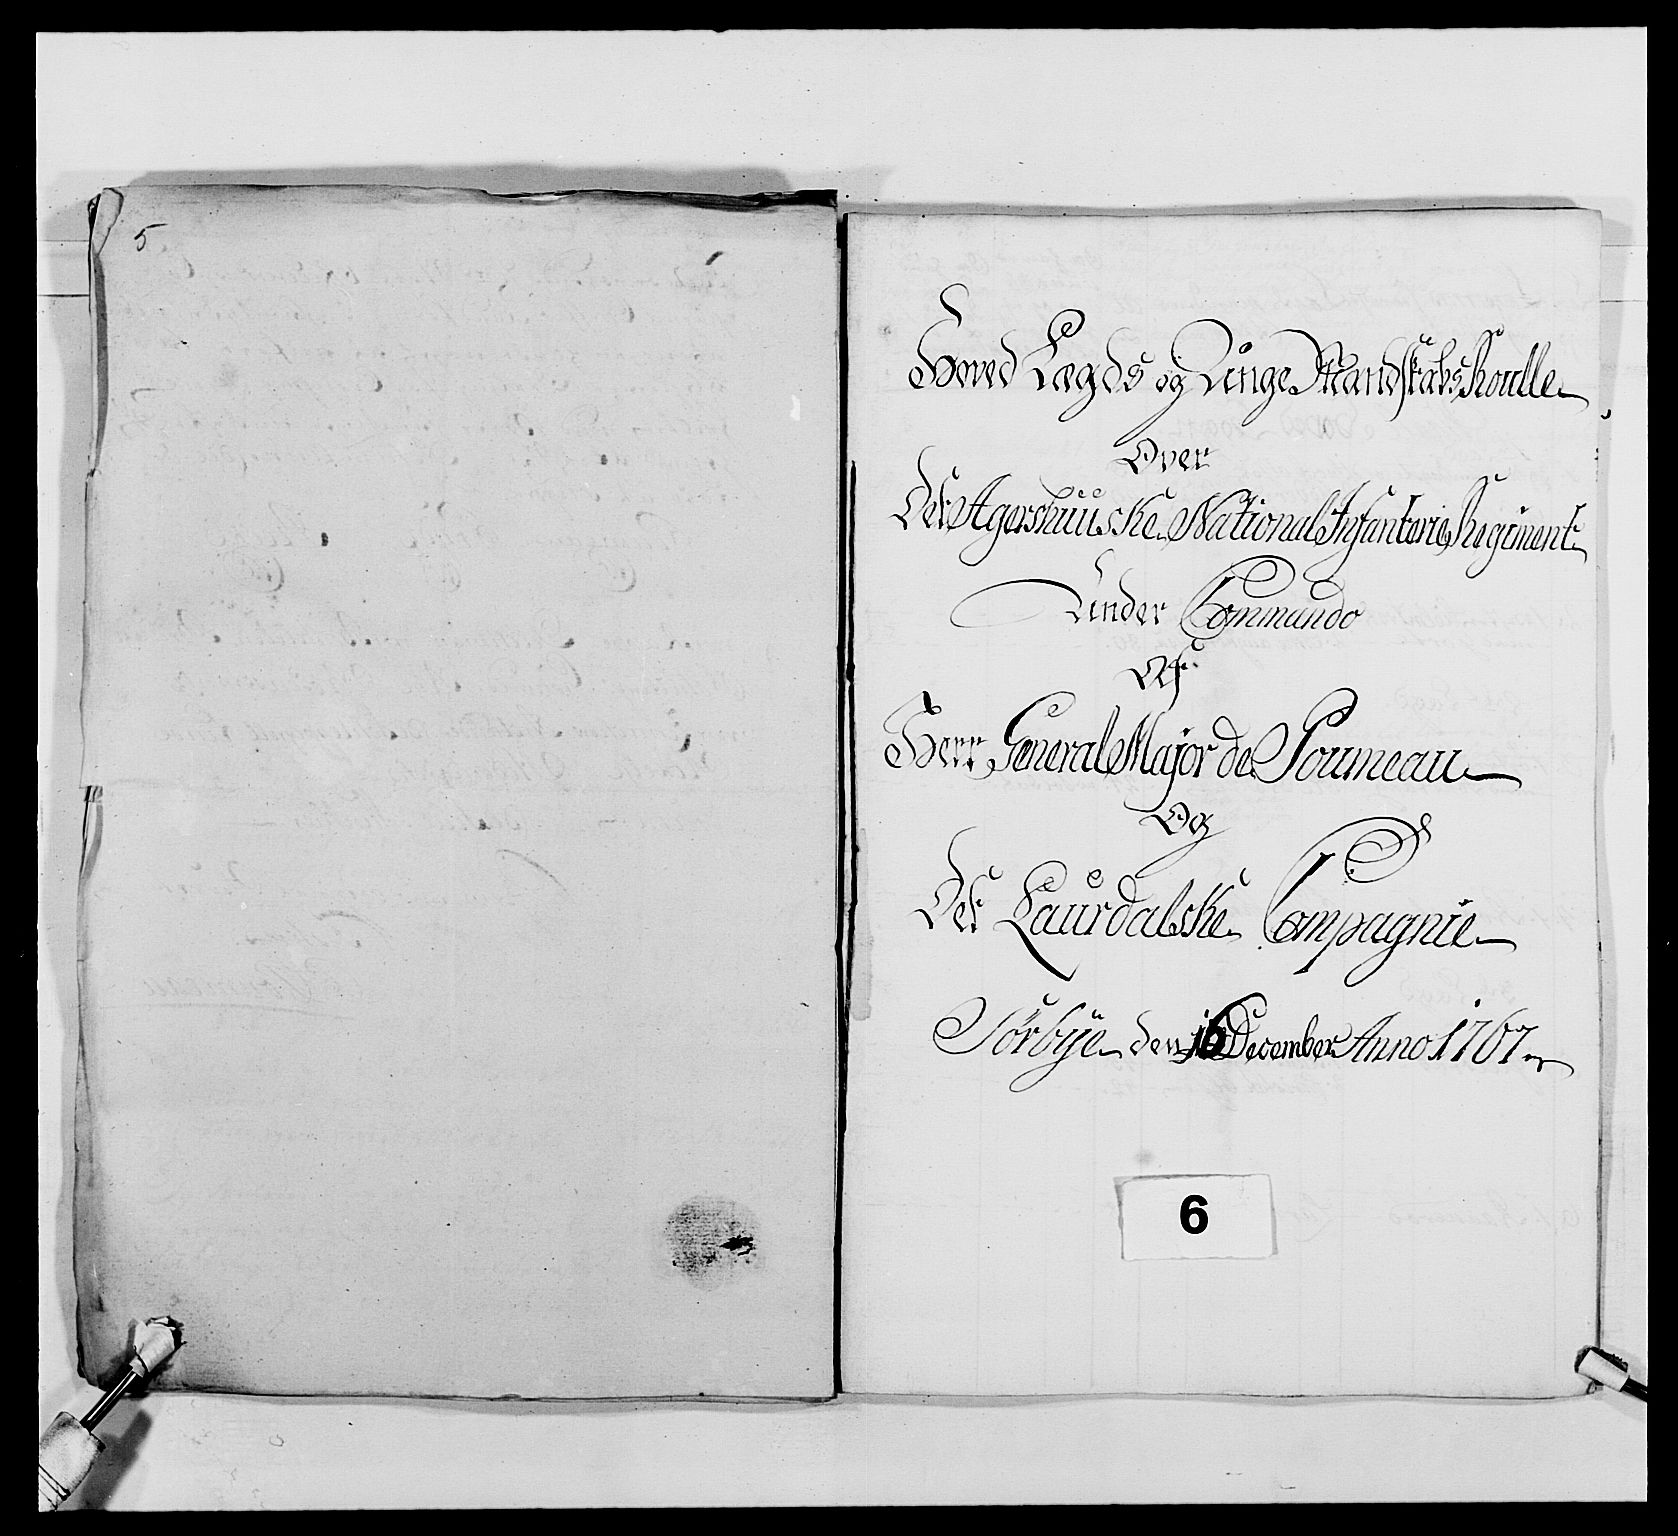 5
Hoved Lægds og Unge Mandskabs Roulle
Over
Det Agershuuske National Infanterie Regiment
Under Commando
Af
Herr General Major de Poumeau
Og
Det Laurdalske Compagnie
Sörbÿe den 16 December Anno 1767
6